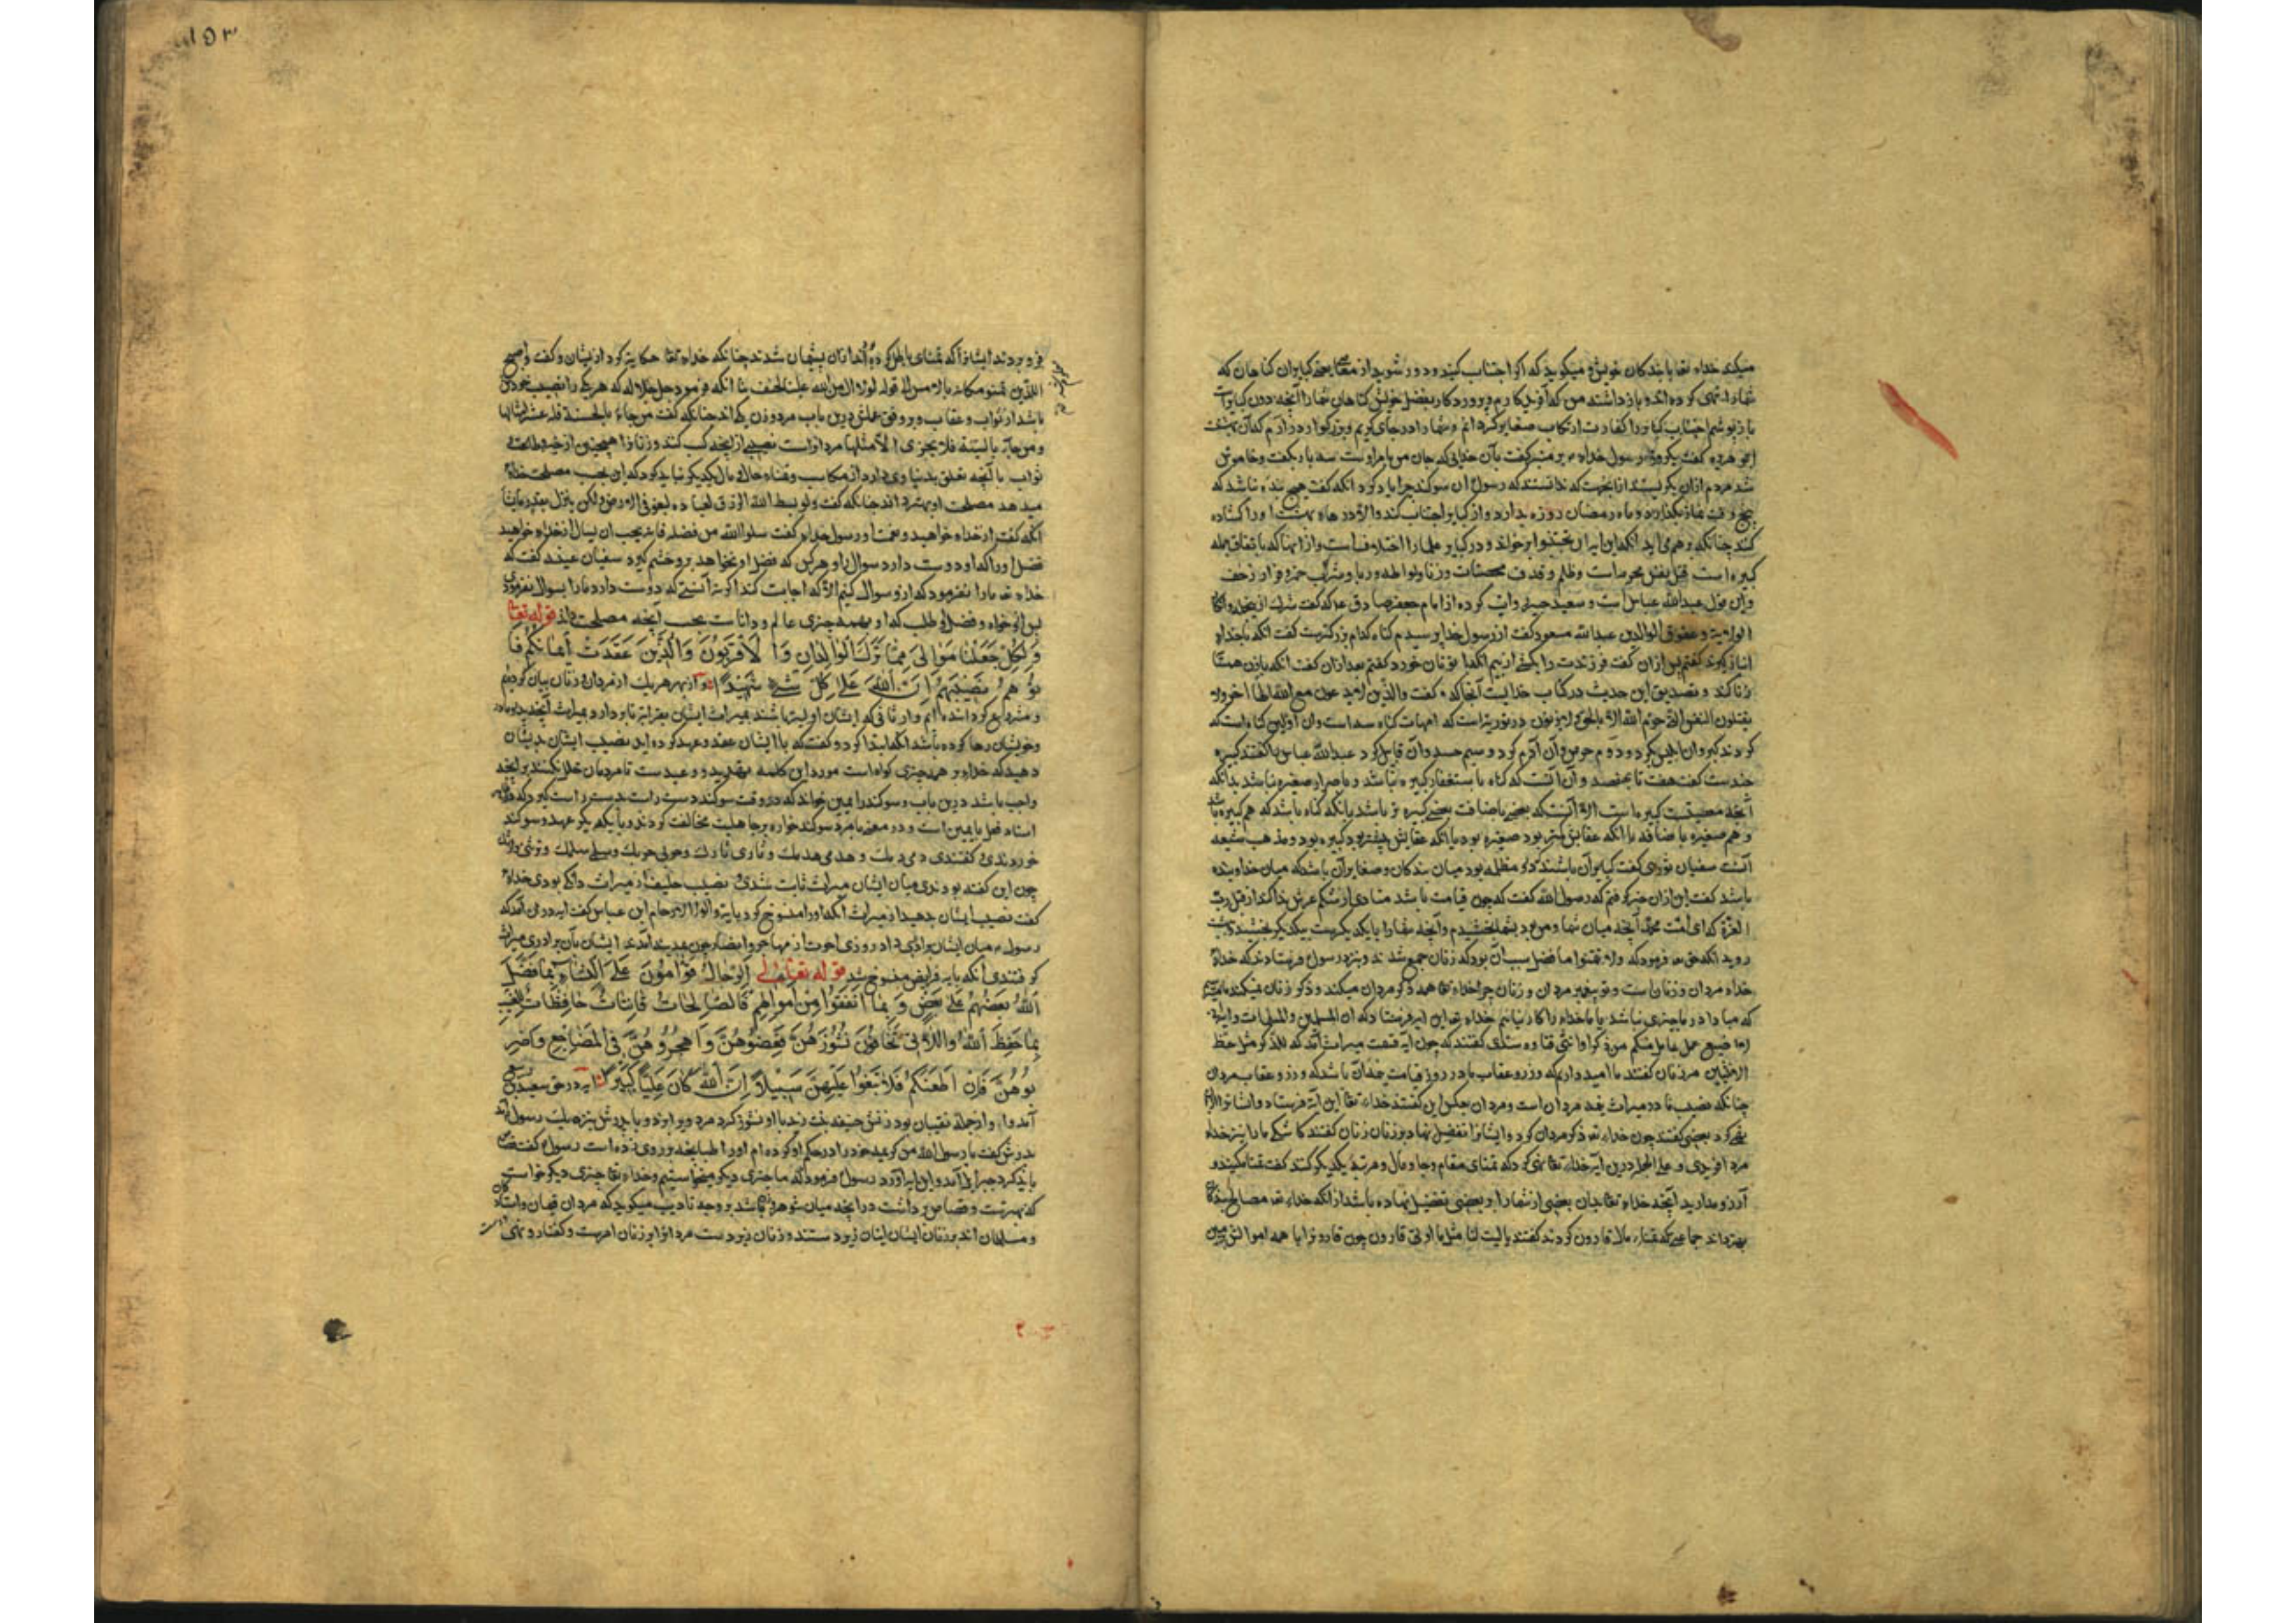 میکند خداء تعا با بندکان خویش و میکوید که اکر اجتناب کنید و دور شوید از بعضی کبایر ان کناهان که
شمارا نهی کرده اند و باز داشتند من که آفریدکارم و پروردکار بفضل خویش کناهان شمارا آنچه دون کبایر است
باز پوشم اجتناب کبایر را کفارت ارتکاب صغایر کردانم و شمارا در جای کریم و بزرکوار در آرم که آن بهشتست
ابو هریره کفت یکروز رسول خداء بر منبر کفت بآن خدایی که جان من بامر اوست سه بار بکفت و خاموش
شد مردم ازان بکریستند از بجهت که ندانستند که رسول ان سوکند چرا یاد کرد آنکه کفت هیچ بنده نباشد که
پنج وقت نماز بکذارد و ماه رمضان روزه بدارد و از کبایر اجتناب کند والا در بهشت اورا کشاده
کنند چنانکه انکه این ایه ان تجتنبوا بر خواند و در کبایر علما را اختلافست و از انها که باتفاق جمله
کبیره است قتل نفس محرمه است و ظلم و قذف محصنات و زنا و لواطه و ربا و شرب خمر و فرار زحف
و این قول عبدالله عباس است و سعید جبیر روایت کرده از امام جعفر صادق ع که کفت شرک
و عقوق الوالدین عبدالله مسعود کفت از رسول خدا پرسیدم کناه کدام بزرکترست کفت آنکه با خداء
انباز کیرند کفتم پس ازان کفت فرزندت را بکشی از بیم آنکه با تو نان خورد کفتم بعد ازان کفت انکه بازن همسا
زنا کند و تصدیق این حدیث در کتاب خدایست آنجا که کفت والذین لا یدعون مع الله الها اخر ولا
یقتلون النفس التی حرم الله الا بالحق ولا یزنون در توریة است که امهات کناه سه است و ان اولین کناه است که
کردند کبر و ان ابلیس کرد و دوم حرص و آن آدم کرد و سیم حسد و آن قابیل کرد عبدالله عباس را کفتند کبیره
چندست کفت هفت تا بهفتصد و آن آنست که کناه با استغفار کبیره نباشد و با صرار صغیره نباشد بدانکه
آنچه معصیت کبیره است الا آنست که بعضی باضافت بعضی کبیره تر باشد بآنکه کناه باشد که هم کبیره باشد
و هم صغیره باضافه با آنکه عقابش کمتر بود صغیره بود و بآنکه عقابش بیشتر بود کبیره بود و مذهب شیعه
آنست سفیان ثوری کفت کبایر آن باشند که مظلمه بود میان بندکان و صغایر آن باشد که میان خدا و بنده
باشد کفت این ازان خبر کرفتم که رسول الله کفت که چون قیامت باشد منادی از شکم عرش ندا کند از قبل رب
العزة که ای امت محمد آنچه میان شما و من بود بشما بخشیدم و آنچه شمارا بایکدیکرست بیکدیکر بخشید و در بهشت
روید انکه حق تعا فرمود که ولا تتمنوا ما فضل سبب آن بود که زنان جمع شدند و بنزد رسول فرستادند که خداء
خداء مردان و زنان است و تو پیغمبر مردان و زنان چرا خداء تعا همه ذکر مردان میکند و ذکر زنان نمیکند
که مبادا در ما چیزی نباشد یا ما خداء را کار نیاییم خداء تعا این ایه فرستاد که ان المسلمین والمسلمات و ایة
لا اضیع عمل عامل منکم من ذکر او انثی قتاده و سدی کفتند که چون ایه قسمت میراث آمد که للذکر مثل حظ
الانثیین مردان کفتند ما امید داریم که وزر و عقاب ما در روز قیامت چندان باشد که وزر و عقاب مردان
چنانکه نصیب ما در میراث نصف مردان است و مردان بعکس این کفتند خداء تعا این آیة فرستاد
نهی کرد بعضی کفتند چون خداء تعا ذکر مردان کرد و ایشانرا تفضیل نهاد بر زنان زنان کفتند کاشکی مارا نیز خداء
مرد آفریدی و علی الجمله درین آیة خداء تعا نهی کرد که تمنای مقام و جاه و مال و مرتبه یکدیکر کنند کفت تمنا مکنید و
آرزو مدارید آنچه خداء تعا بدان بعضی از شمارا بر بعضی تفضیل نهاده باشد از آنکه خداء تعا مصالح بندکان
بهتر داند جماعتی که تمناء مال قارون کردند کفتند یا لیت لنا مثل ما اوتی قارون چون قارونرا با همه اموالش بزمین
۱۵۳
فرو بردند ایشانرا که تمنای باطل کرده اند ازان پشیمان شدند چنانکه خداء تعا حکایة کرد از ایشان و کفت و اصبح
الذین تمنوا مکانه بالامس الی قوله لولا ان من الله علینا لخسف بنا انکه فرمود جل جلاله که هر یک را نصیب خود
باشد از ثواب و عقاب و بر وفق عملش درین باب مرد و زن یکی اند چنانکه کفت من جاء بالحسنة فله عشر امثالها
و من جاء بالسیئة فلا یجزی الا مثلها مردانراست نصیبی از آنچه کسب کنند و زنانرا همچنین
ثواب یا آنچه تعلق بدنیاوی دارد از مکاسب و تمناء حال و مال یکدیکر نباید کرد که این بحسب مصلحت خداء
میدهد مصلحت او بهتر داند چنانکه کفت و لو بسط الله الرزق لعباده لبغوا فی الارض ولکن ینزل بقدر ما یشاء
انکه کفت از خداء خواهید و نعمت او رسول خداء کفت سلوا الله من فضله فانه یحب ان یسال از خداء خواهید
فضل اورا که او دوست دارد سوال را و هرکس که فضل او نخواهد برو خشم کیرد سفیان عیینه کفت که
خداء تعا مارا نفرمود که ازو سوال کنیم الا که اجابت کند اکر نه آنستی که دوست دارد مارا بسوال نفرمودی
پس ازو خواه و فضل او طلب که او بهمه چیزی عالم و داناست بحسب آنچه مصلحت داند قوله تعا
وَلِکُلٍّ جَعَلْنَا مَوَالِیَ مِمَّا تَرَکَ الْوَالِدَانِ وَالْاَقْرَبُونَ وَالَّذِینَ عَقَدَتْ اَیْمَانُکُمْ فَآ
تُوهُمْ نَصِیبَهُمْ اِنَّ اللهَ عَلَی کُلِّ شَیْءٍ شَهِیدًا و از بهر هریک از مردان و زنان بیان کردیم
و مشروع کردانیده ایم وارثانی که ایشان اولیتر باشند بمیراث ایشان
و خویشان رها کرده باشد انکه ابتدا کرد و کفت که با ایشان عقد و عهد کرده اید نصیب ایشان بدیشان
دهید که خداء بر همه چیزی کواه است مورد این کلمه تهدید و وعیدست تا مردمان خلل نکنند بر آنچه
واجب باشد درین باب و سوکند را یمین خواند که در وقت سوکند دست راست بدست راست کیرد
اسناد فعل با یمین است و در معنی با مرد سوکند خواره بر جاهلیت مخالفت کردندی یا یکدیکر عهد و سوکند
خوردندی و کفتندی دمی دمک و هدمی هدمک و ثاری ثارک و حربی حربک و سلمی سلمک و ترثنی وارثک
چون این کفته بودندی میان ایشان میراث ثابت شدی نصیب حلیف از میراث دانک بودی خداء
کفت نصیب ایشان بدهید از میراث انکه اورا منسوخ کرد بآیة واولوا الارحام ابن عباس کفت آیه در می آمد که
رسول ع میان ایشان برادری داد روزی اخوت از مهاجر و انصار چون بمدینه آمدند ایشان بآن برادری میراث
کرفتندی انکه بایه فرایض منسوخ شد قوله تعالی اَلرِّجَالُ قَوَّامُونَ عَلَی النِّسَاءِ بِمَا فَضَّلَ
اللهُ بَعْضَهُمْ عَلَی بَعْضٍ وَ بِمَا اَنْفَقُوا مِنْ اَمْوَالِهِمْ فَالصَّالِحَاتُ قَانِتَاتٌ حَافِظَاتٌ لِلْغَیْبِ
بِمَا حَفِظَ اللهُ وَاللَّاتِی تَخَافُونَ نُشُوزَهُنَّ فَعِظُوهُنَّ وَاهْجُرُوهُنَّ فِی الْمَضَاجِعِ وَاضْرِ
بُوهُنَّ فَاِنْ اَطَعْنَکُمْ فَلَا تَبْغُوا عَلَیْهِنَّ سَبِیلًا اِنَّ اللهَ کَانَ عَلِیًّا کَبِیرًا ایه در حق سعید بن
آمد و او از جمله نقیبان بود زنش حبیبه بنت زید با او نشوز کرد مرد ویرا بزد و با پدرش بنزدیک رسول آمد
پدرش کفت یا رسول الله من کریمه خودرا در حکم او کرده ام اورا طبانچه بر روی زده است رسول ع کفت قصاص
باید کرد جبرئیل آمد و این ایه آورد رسول ع فرمود که ما چیزی دیکر میخواستیم و خداء تعا چیزی دیکر خواست
که بهترست و قصاص برداشت در آنچه میان شوهر و زن باشد بر وجه تادیب میکوید که مردان قیمان و استاد
و مسلطان اند بر زنان ایشان اینان زبردستند و زنان زیردست مردانرا بر زنان امرست و کفتار و نهی